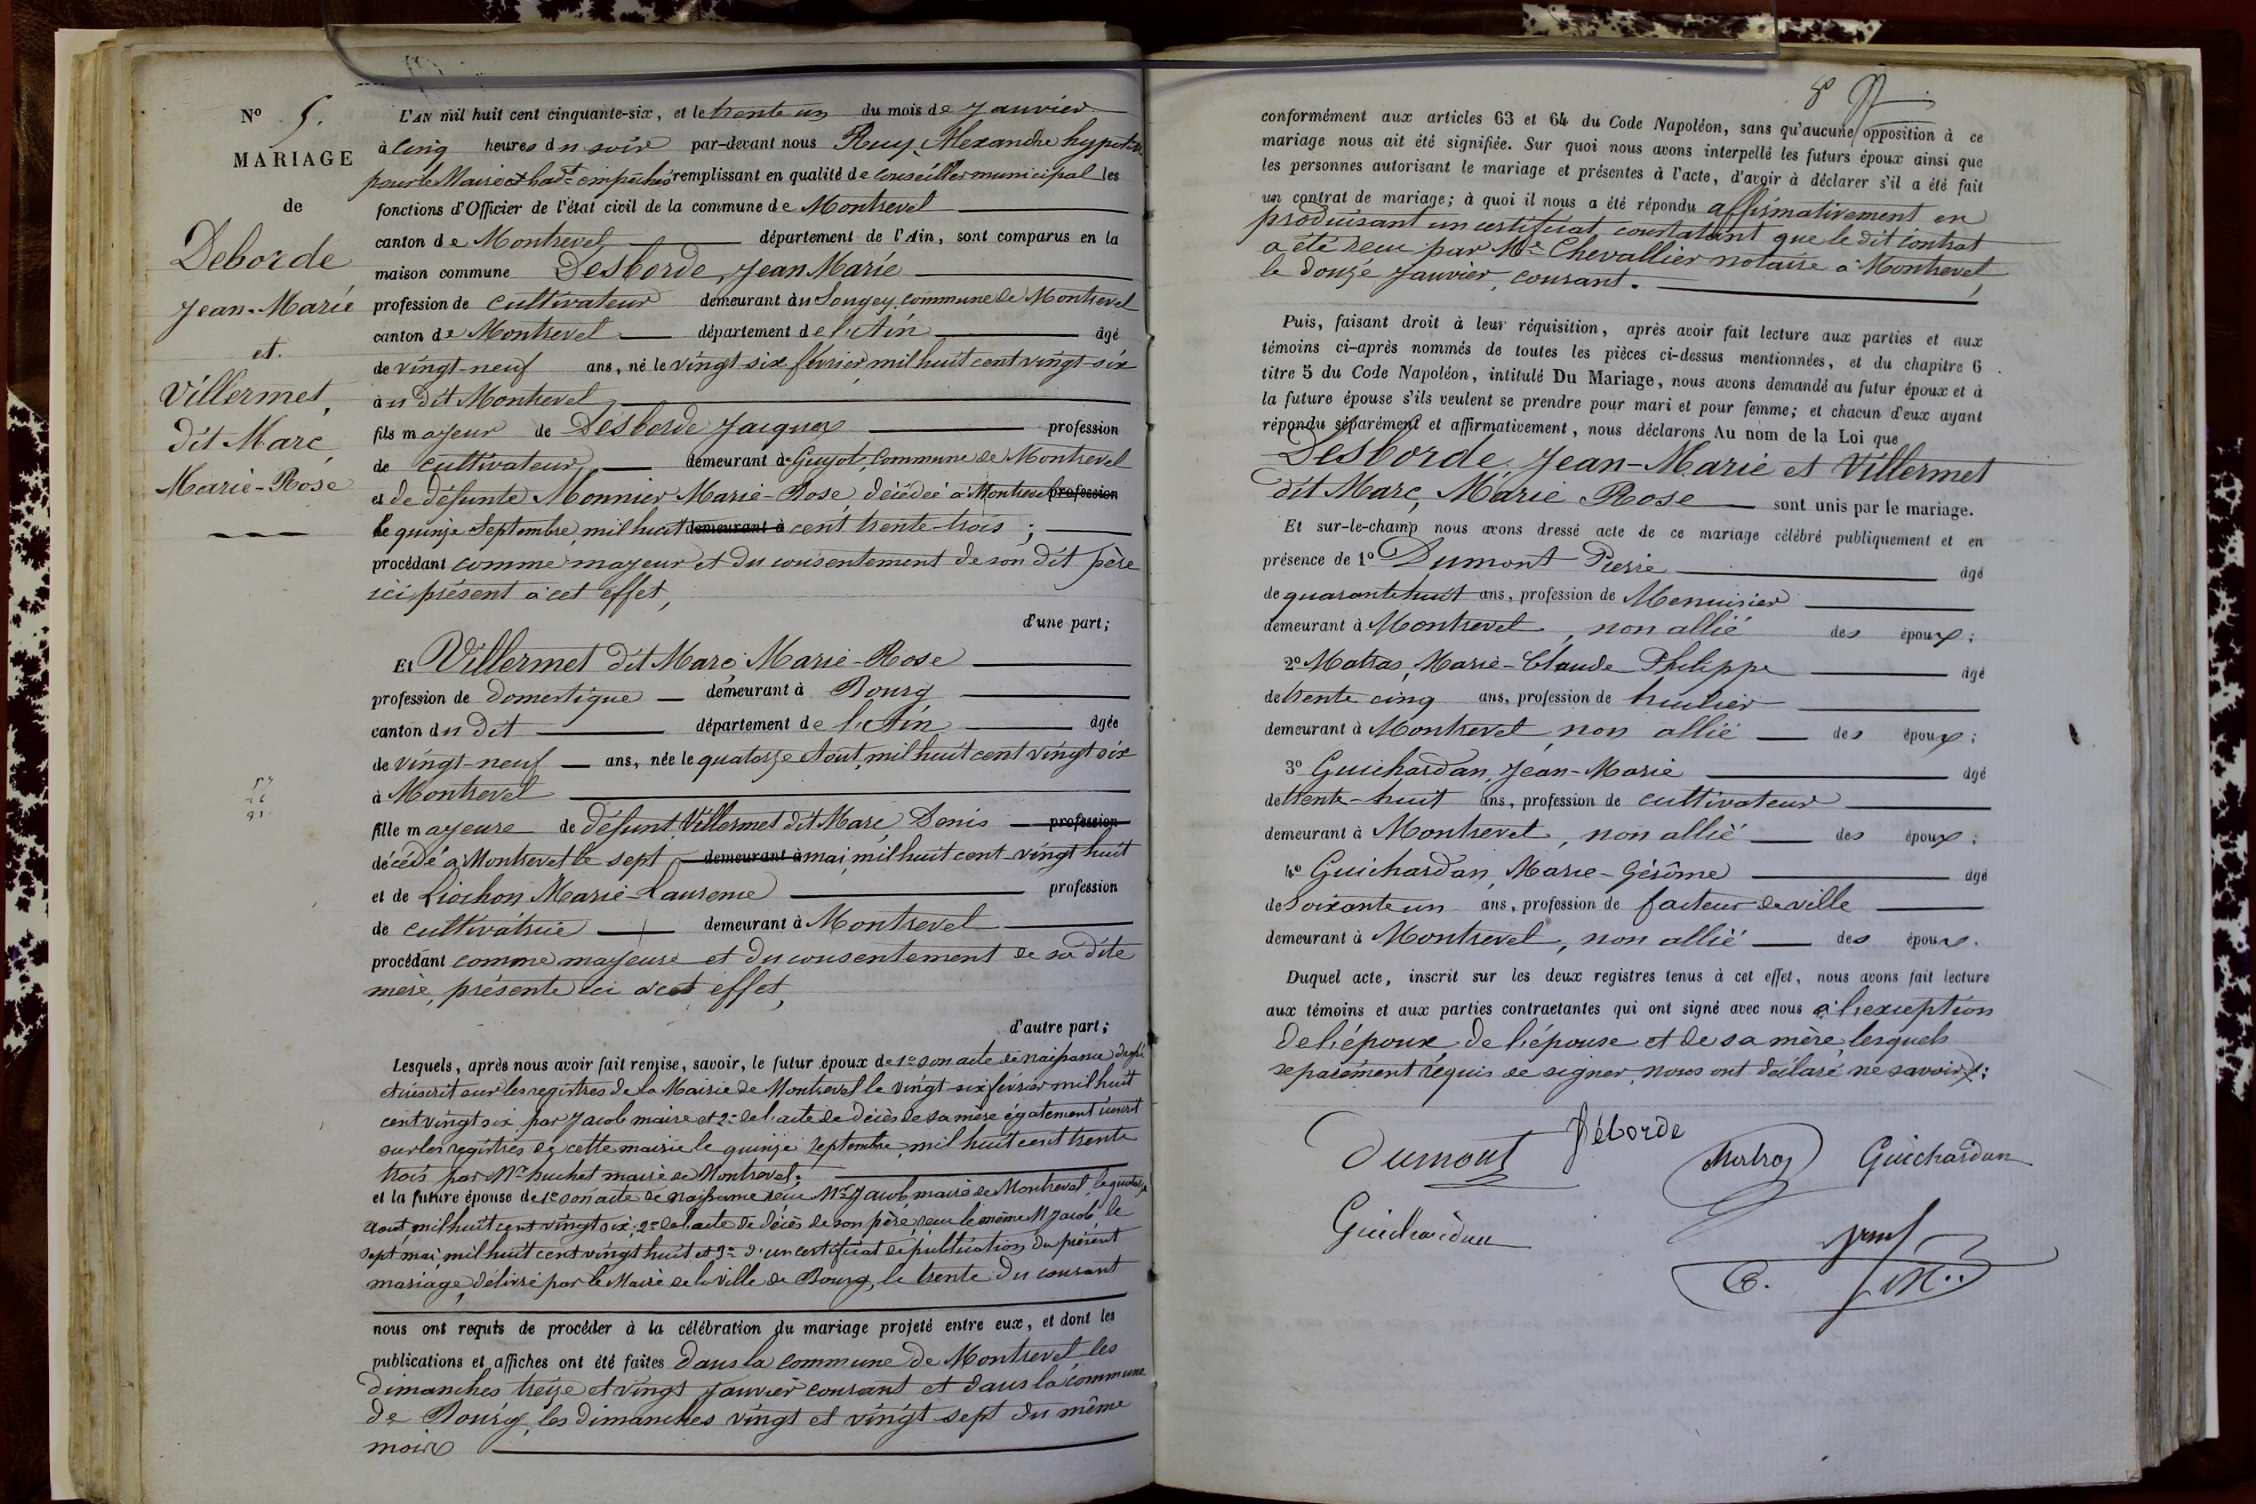 N° 5.
MARIAGE
de
Deborde
Jean-Marie
et
Villermet,
dit Marc
Marie-Rose
L'AN mil huit cent cinquante-six, et le trente un du mois de Janvier
à cinq heures du soir par-devant nous Ruy, Alexandre
pour le Maire et empêchés remplissant en qualité de Conseiller municipal les
fonctions d'Officier de l'état civil de la commune de Montrevel
canton de Montrevel département de l'Ain, sont comparus en la
maison commune Desborde, Jean Marie
profession de cultivateur demeurant au Sougey, commune de Montrevel
canton de Montrevel département de l'Ain âgé
de vingt-neuf ans, né le vingt-six février mil huit cent vingt-six
au dit Montrevel
fils mayeur de Desborde Jacques profession
de cultivateur demeurant à Guyot, Commune de Montrevel
et de défunte Monnier Marie-Rose, décédée à Montrevel profession
le quinze Septembre, mil huit demeurant à cent trente-trois;
procédant comme mayeur et du consentement de son dit père
ici présent à cet effet,
d'une part;
Et Villermet dit Marc, Marie-Rose
profession de domestique demeurant à Bourg
canton du dit département de l'Ain âgée
de vingt-neuf ans, née le quatorze Août, mil huit cent vingt six
à Montrevel
fille mayeure de défunt, Villermet dit Marc, Denis profession
décédé à Montrevel le sept demeurant à mai, mil huit cent vingt huit
et de Liochon Marie-Laurence profession
de cultivatrice demeurant à Montrevel
procédant comme mayeure et du consentement de sa dite
mère, présente ici à cet effet,
d'autre part;
Lesquels, après nous avoir fait remise, savoir, le futur époux de 1° son acte de naissance
et inscrit sur les registres de la Mairie de Montrevel le vingt-six février mil huit
cent vingt six, par Jacob maire et 2° de l'acte de décès de sa mère également inscrit
sur les registres de cette mairie le quinze Septembre, mil huit cent trente
trois par Mr huchet maire de Montrevel;
et la future épouse de 1° son acte de naissance reçu Mr Jacob, maire de Montrevel, le quatorze
Août, mil huit cent vingt six; 2° de l'acte de décès de son père, reçu le même M Jacob, le
sept mai, mil huit cent vingt huit et 3° d'un certificat de publication du présent
mariage, délivré par le Maire de la ville de Bourg, le trente du courant
nous ont requis de procéder à la célébration du mariage projeté entre eux, et dont les
publications et affiches ont été faites dans la commune de Montrevel les
dimanches treize et vingt Janvier courant et dans la commune
de Bourg, les dimanches vingt et vingt-sept du même
mois
8
conformément aux articles 63 et 64 du Code Napoléon, sans qu'aucune opposition à ce
mariage nous ait été signifiée. Sur quoi nous avons interpellé les futurs époux ainsi que
les personnes autorisant le mariage et présentes à l'acte, d'avoir à déclarer s'il a été fait
un contrat de mariage; à quoi il nous a été répondu affirmativement en
produisant un certificat constatant que le dit contrat
a été reçu par Me Chevallier notaire à Montrevel,
le douze Janvier, courant.
Puis, faisant droit à leur réquisition, après avoir fait lecture aux parties et aux
témoins ci-après nommés de toutes les pièces ci-dessus mentionnées, et du chapitre 6
titre 5 du Code Napoléon, intitulé Du Mariage, nous avons demandé au futur époux et à
la future épouse s'ils veulent se prendre pour mari et pour femme; et chacun d'eux ayant
répondu séparément et affirmativement, nous déclarons Au nom de la Loi que
Desborde, Jean-Marie et Villermet
dit Marc, Marie Rose sont unis par le mariage.
Et sur-le-champ nous avons dressé acte de ce mariage célébré publiquement et en
présence de 1° Dumont Pierre âgé
de quarante huit ans, profession de Menuisier
demeurant à Montrevel, non allié des époux;
2° Matras, Marie-Claude Philippe âgé
de trente cinq ans, profession de huilier
demeurant à Montrevel, non allié des époux;
3° Guichardan, Jean-Marie âgé
de trente-huit ans, profession de cultivateur
demeurant à Montrevel, non allié des époux;
4° Guichardan, Marie-Gérôme âgé
de Soixante un ans, profession de facteur de ville
demeurant à Montrevel, non allié des époux.
Duquel acte, inscrit sur les deux registres tenus à cet effet, nous avons fait lecture
aux témoins et aux parties contractantes qui ont signé avec nous à l'exception
de l'époux, de l'épouse et de sa mère, lesquels
séparément requis de signer, nous ont déclaré ne savoir;
Déborde
Dumont
Matras
Guichardan
Guichardan